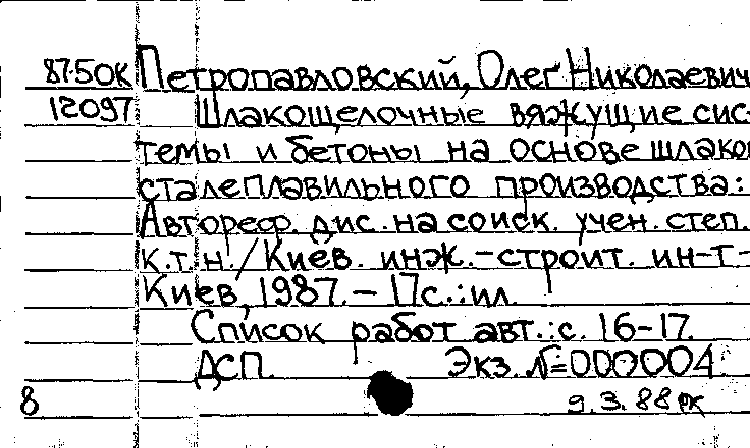 87-5ОК Петропавловский, Олег Николаевич
12097 Шлакощелочные вяжущие сис-
темы и бетоны на основе шлаков
сталеплавильного производства:
Автореф. дис. на соиск. учен. степ.
к.т.н. / Киев. инж.-строит. ин-т-
Киев, 1987. - 17с.: ил.
Список работ авт.: с. 16-17.
ДСП. Экз. №=000004.
8 9.3.88